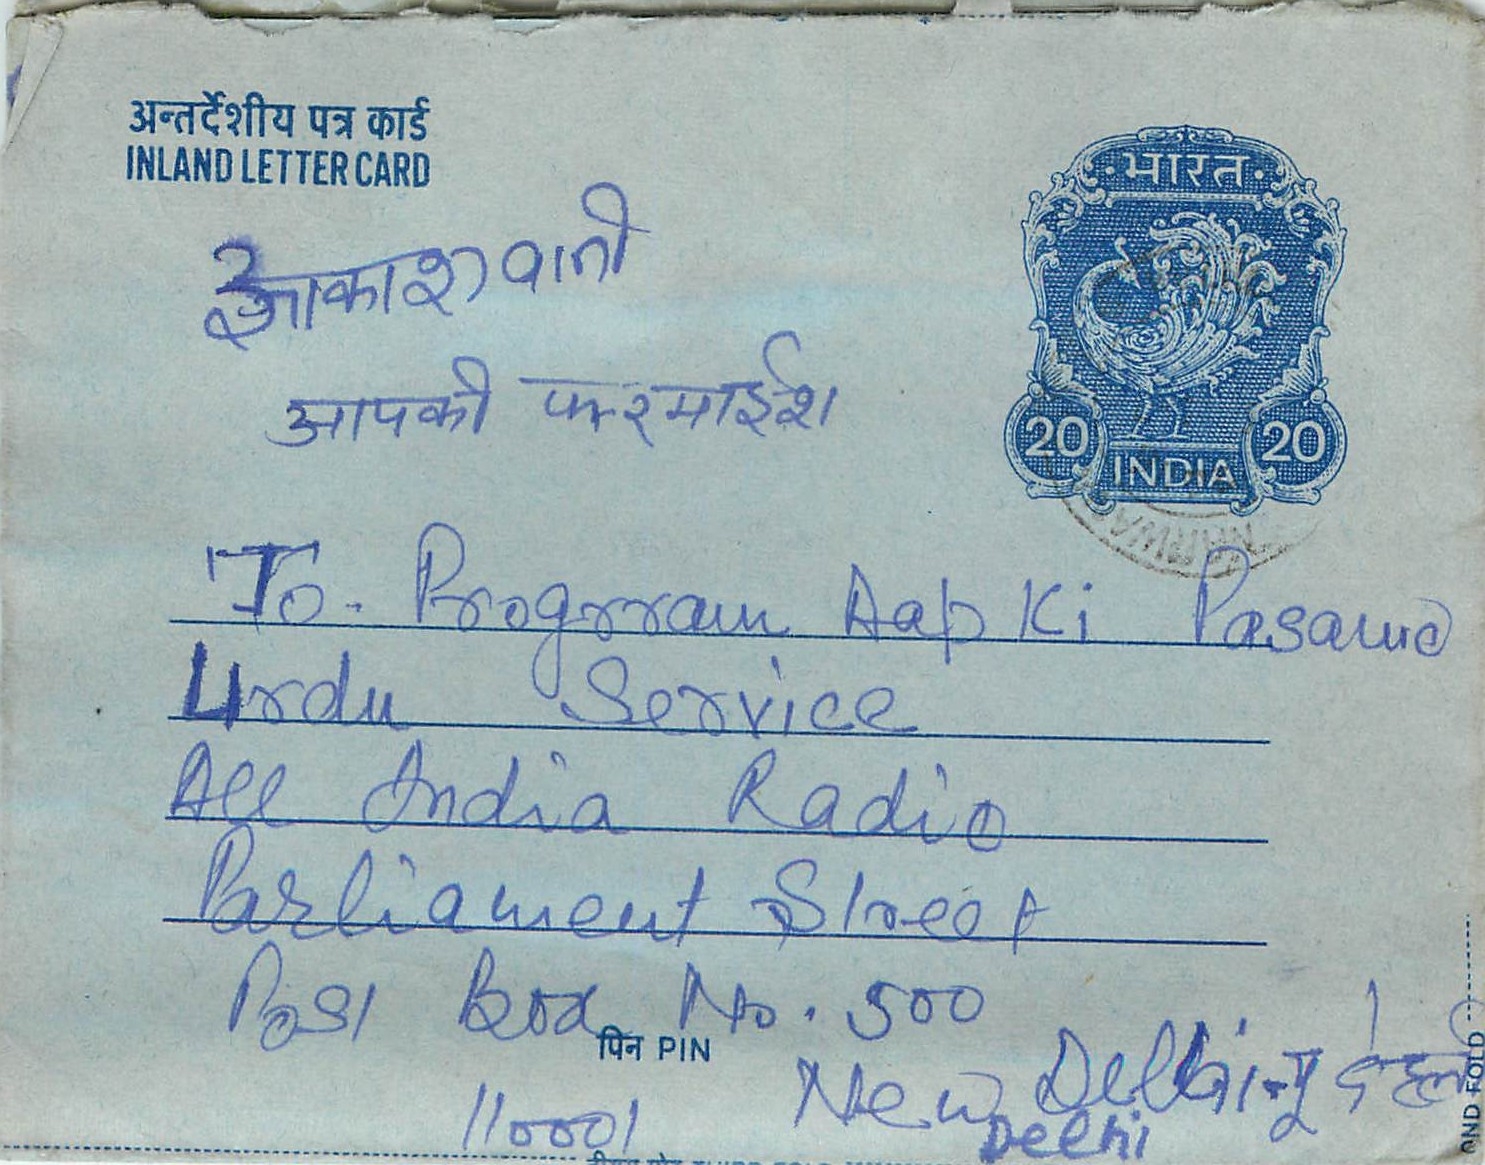 अन्तर्देशीय पत्र कार्ड
INLAND LETTER CARD
भारत
20 20
INDIA
आकाशवानी
आपकी फरमाईश
To- Progrram Aap Ki Pasand
Urdu Service
All India Radio
Parliament Street
Post Box No. 500
पिन PIN
New Delhi-नु देहली
110001 Delhi
AND FOLD